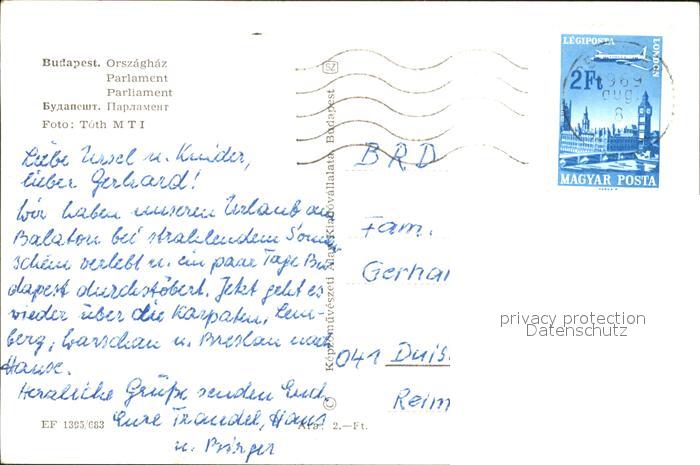 Budapest. Országház
Parlament
Parliament
Будапешт. Парламент
Foto: Tóth MTI
Liebe Ursel u. Kinder,
lieber Gerhard!
Wir haben unseren Urlaub am
Balaton bei strahlendem Sonnen
schein verlebt u. ein paar Tage Bu
dapest durchstöbert. Jetzt geht es
wieder über die Karpaten, Lem-
berg, Warschau u. Breslau nach
Hause.
Herzliche Grüße senden Euch
Eure Traudel, Hans
u.
EF 1395/683
Ára: 2.—Ft.
Képzőművészeti Alap Kiadóvállalata, Budapest
SZ
LÉGIPOSTA
LONDON
2Ft
1969
AUG.
8
MAGYAR POSTA
BRD
Fam.
Gerha
041 Duis
Reim
privacy protection
Datenschutz